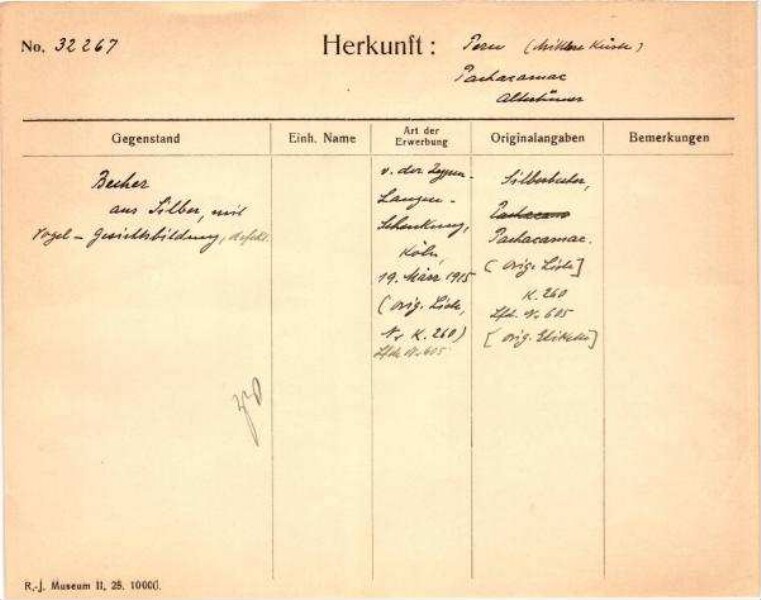 No. 32267
Herkunft: Peru (Mittlere Küste)
Pachacamac
Altertümer
Gegenstand Einh. Name Art der Erwerbung Originalangaben Bemerkungen
Becher
aus Silber, mit
Vogel-Gesichtsbildung, defekt.
v. der Zypen-
Langen-
Schenkung,
Köln,
19. März 1915
(orig. Liste,
Nr K. 260)
Lfde N. 605
Silberbecher,
Pachacamac.
(orig. Liste]
K. 260
Lfd. N. 605
[orig. Etikette]
R.-J. Museum II, 25. 10000.